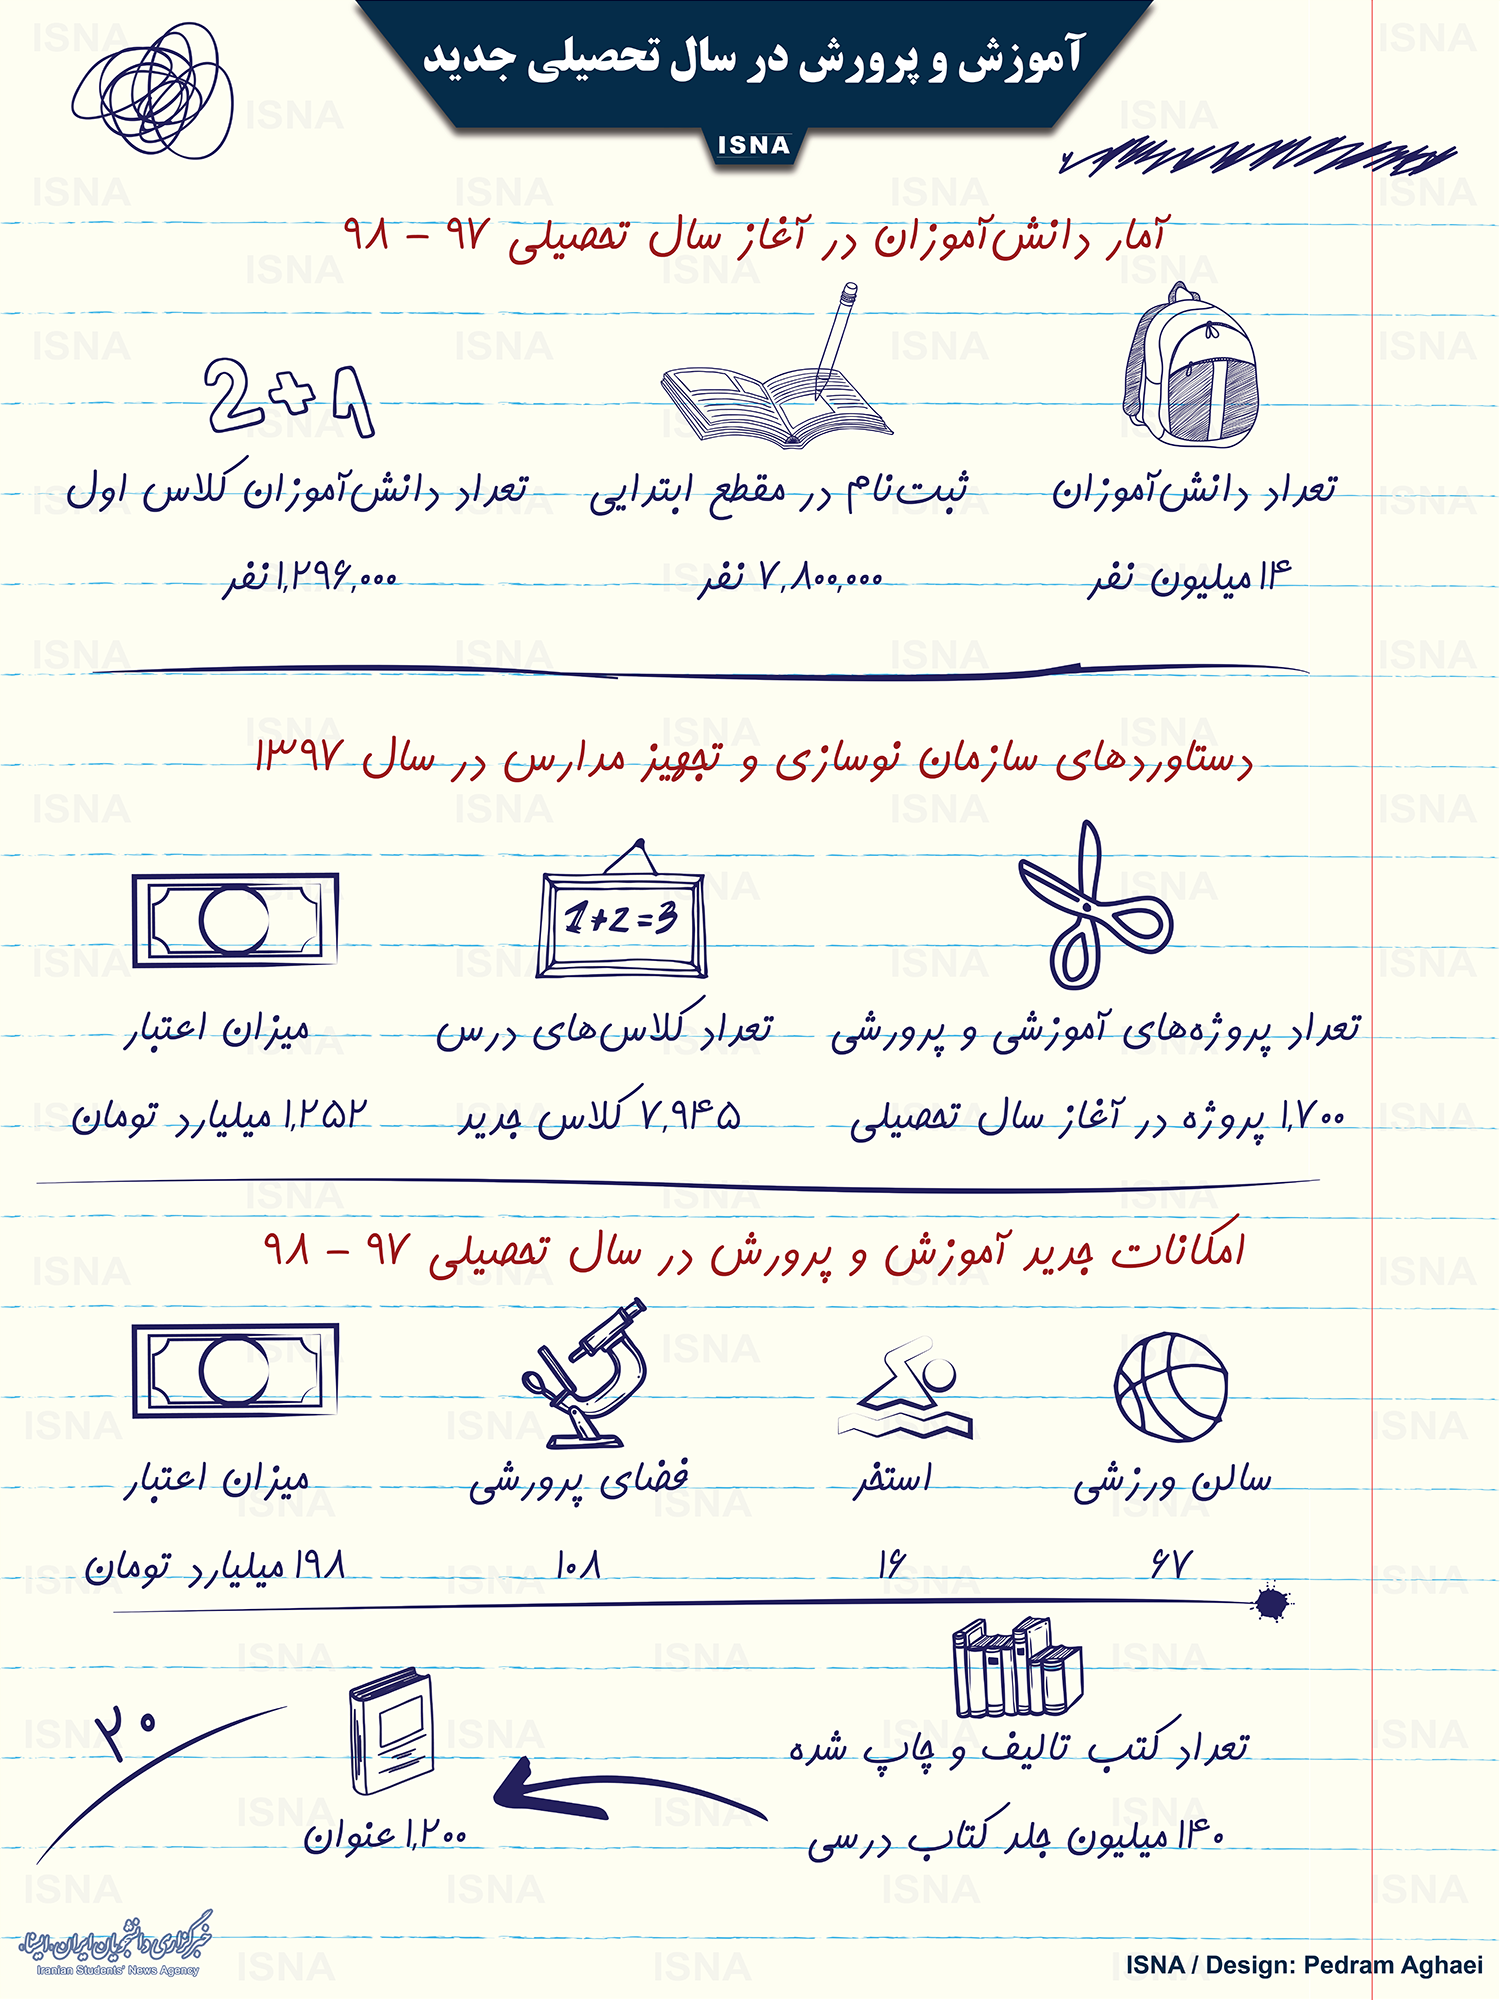 آموزش و پرورش در سال تحصیلی جدید
ISNA
آمار دانش‌آموزان در آغاز سال تحصیلی ۹۷ - ۹۸
2+1
تعداد دانش‌آموزان
ثبت‌نام در مقطع ابتدایی
تعداد دانش‌آموزان کلاس اول
۱۴ میلیون نفر
۷,۸۰۰,۰۰۰ نفر
۱,۲۹۶,۰۰۰ نفر
دستاوردهای سازمان نوسازی و تجهیز مدارس در سال ۱۳۹۷
1+2=3
تعداد پروژه‌های آموزشی و پرورشی
تعداد کلاس‌های درس
میزان اعتبار
۱,۷۰۰ پروژه در آغاز سال تحصیلی
۷,۹۴۵ کلاس جدید
۱,۲۵۲ میلیارد تومان
امکانات جدید آموزش و پرورش در سال تحصیلی ۹۷ - ۹۸
سالن ورزشی
استخر
فضای پرورشی
میزان اعتبار
۶۷
۱۶
۱۰۸
۱۹۸ میلیارد تومان
تعداد کتب تالیف و چاپ شده
۱۴۰ میلیون جلد کتاب درسی
۱,۲۰۰ عنوان
۲۰
خبرگزاری دانشجویان ایران، ایسنا
Iranian Students' News Agency
ISNA / Design: Pedram Aghaei